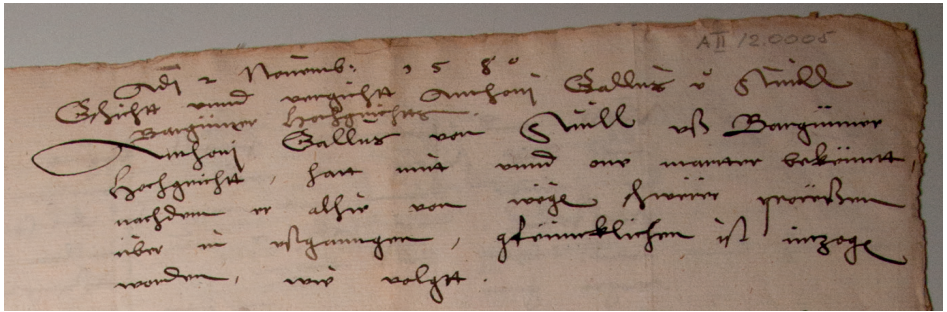 AII /2.0005
Adi 2 Novemb: 1580
Gschicht unnd vergicht Anthoni Gallus v Sÿuill
Bargünner Hochgrichtts
Anthoni Gallus von Sÿuill uß Bargünner
Hochgricht, hatt mitt unnd one martter bekennt,
nachdem er alhie von wege schwerer processen
über in ußganngen, gfencklichen ist inzoge
worden, wie volgtt.